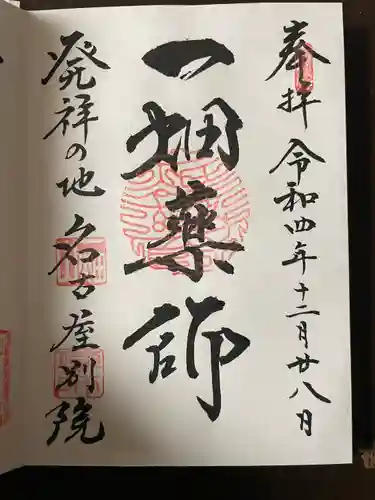 奉拝 令和四年十二月廿八日
一畑薬師
発祥の地 名古屋別院